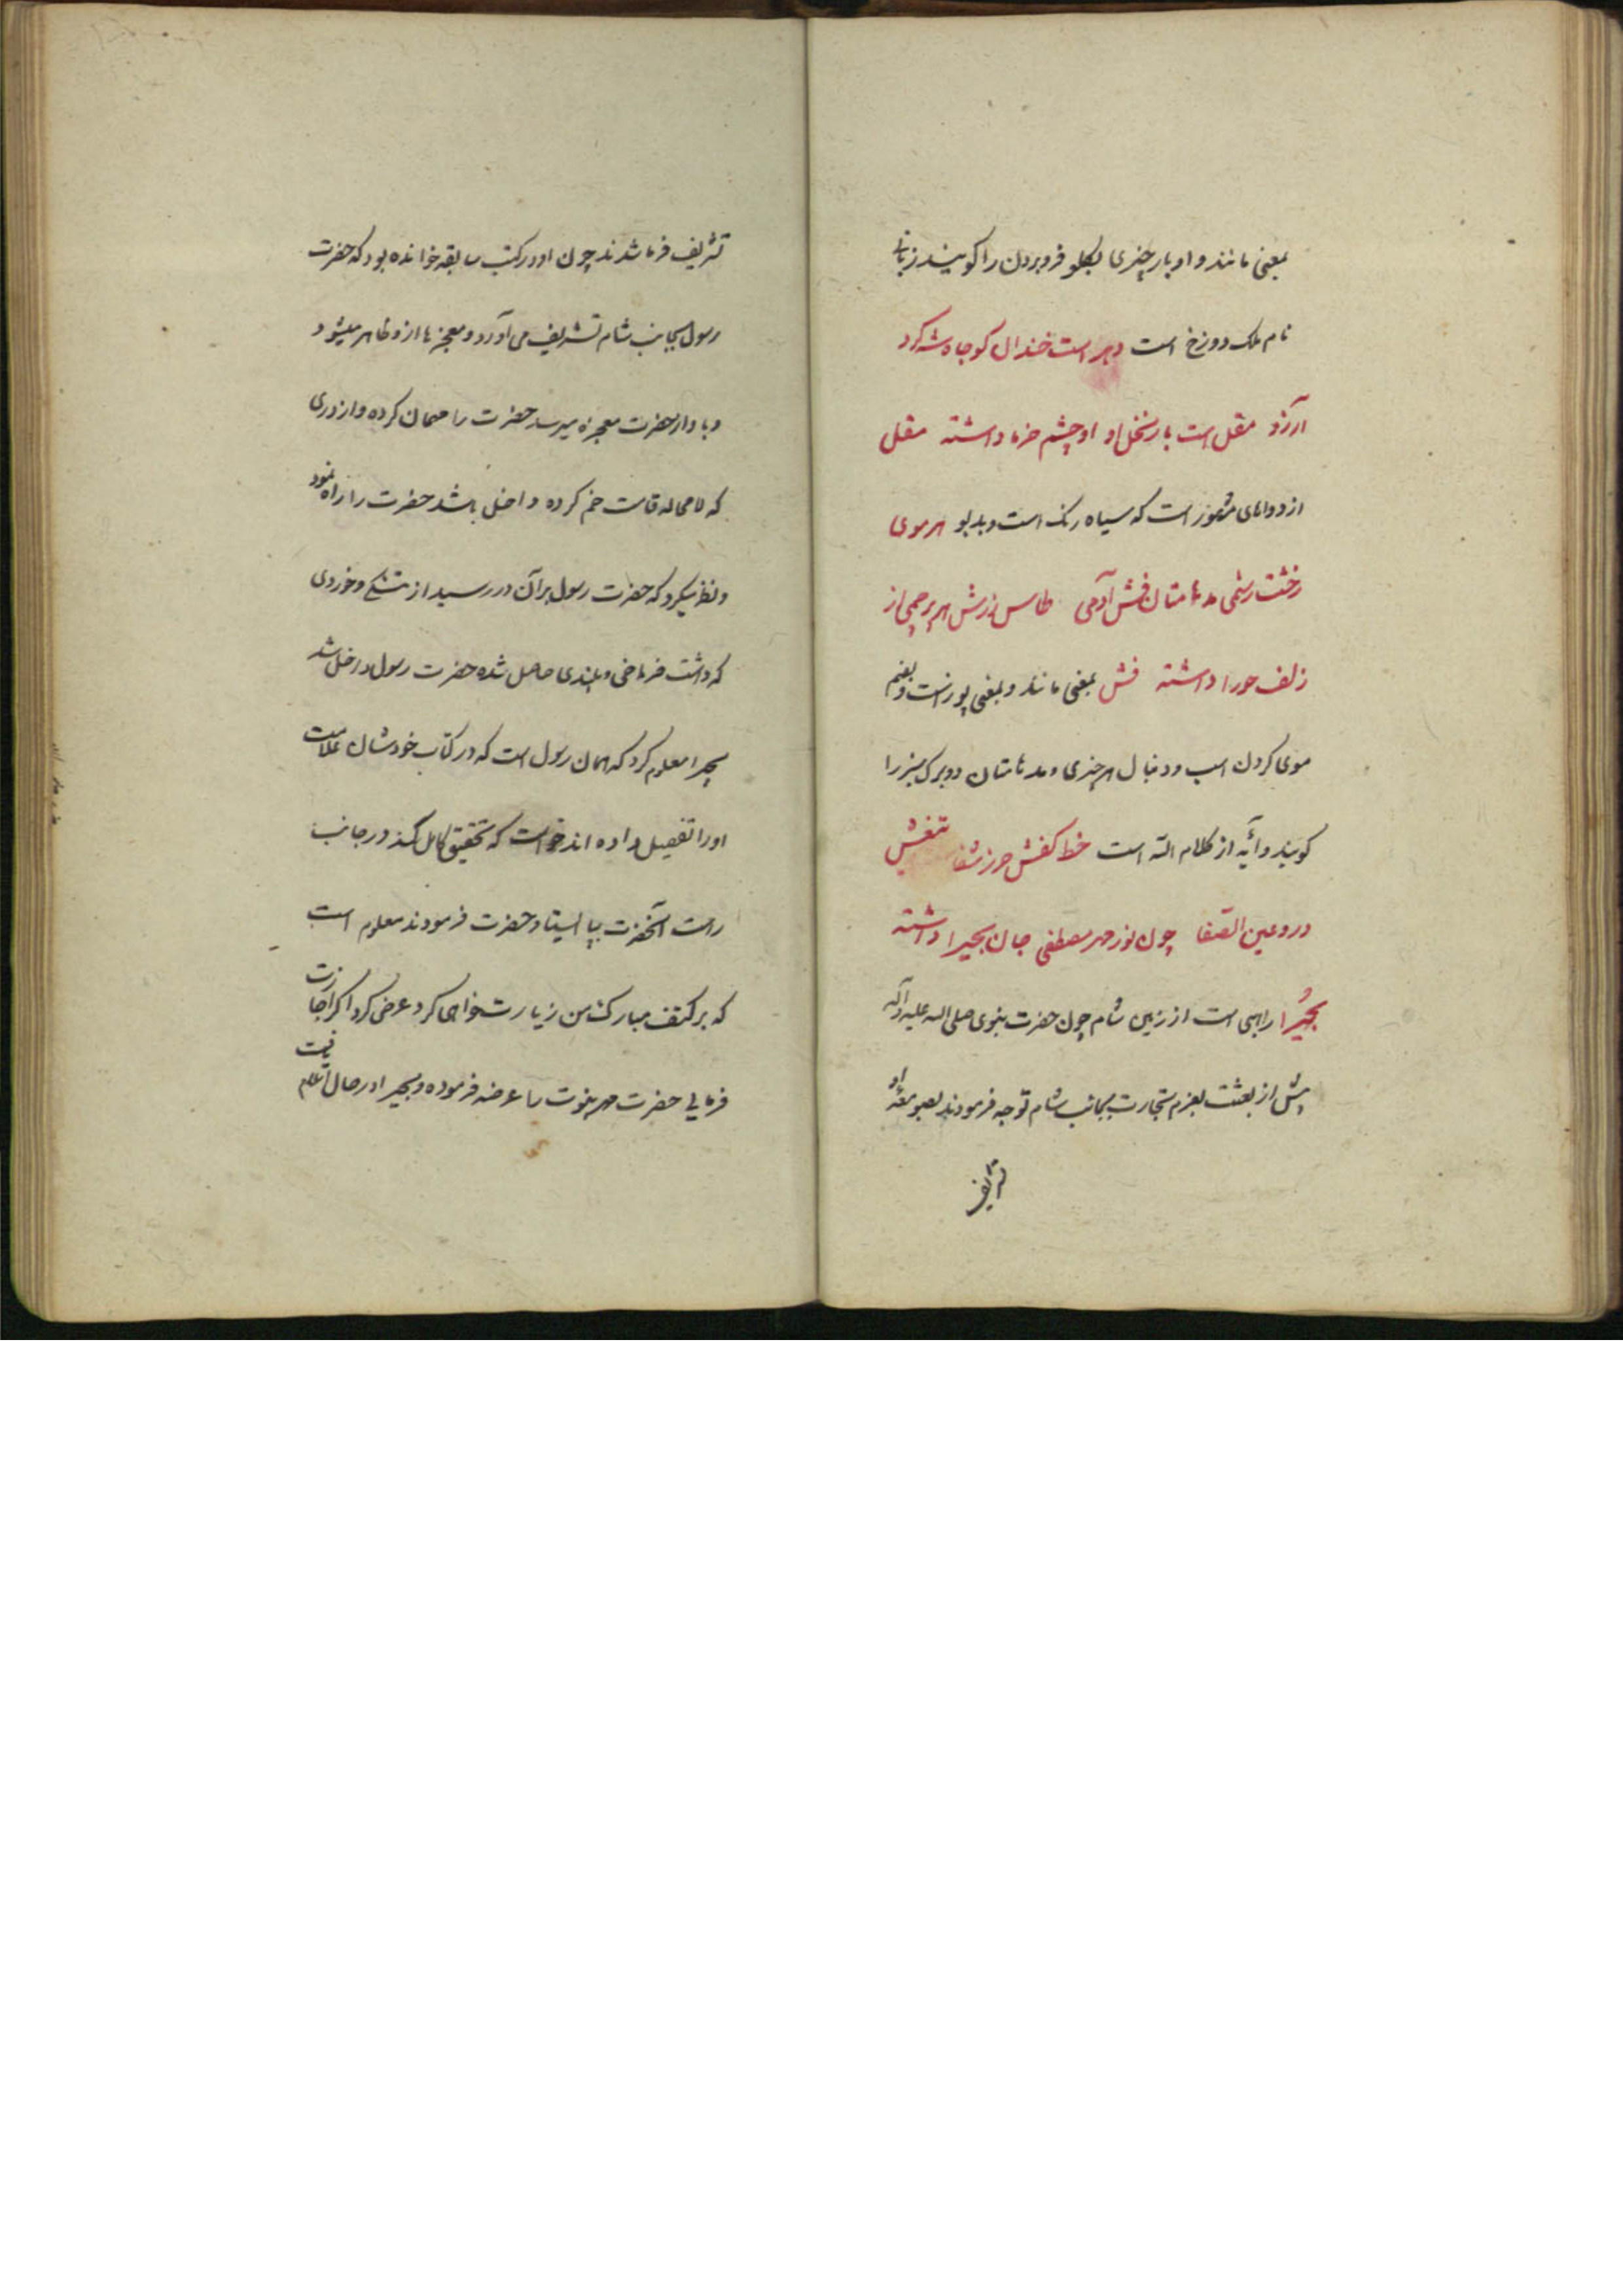 بمعنی مانند و اوبار چیزی بگلو فروبردن را کویند زبانی
نام ملک دوزخ است دهر است خندان کو جاه شه کرد
آرزو مقل است بار نخل او او چشم خرما داشته مقل
از دواهای مشهور است که سیاه رنک است و بدبو هر موی
رخشت رستمی مدهامتان فش آدمی طاس زرش هر پرچمی از
زلف حورا داشته فش بمعنی مانند و بمعنی پوزست و بفتح
موی کردن اسب و دنبال هر چیزی و مدهامتان دو برک سبز را
کویند و آیه از کلام الله است خط کفش حرز شفا تیغش
درو عین الصفا چون نور مهر مصطفی جان بحیرا داشته
بحیرا راهبی است از زمین شام چون حضرت نبوی صلی الله علیه وآله
پیش از بعثت بعزم تجارت بجانب شام توجه فرمودند بصومعه او
تشریف
تشریف فرما شدند چون او در کتب سابقه خوانده بود که حضرت
رسول بجانب شام تشریف می آورد و معجزها ازو ظاهر میشود
و با واز حضرت معجزه میرسد حضرت را مهمان کرده و از دری
که لامحاله قامت خم کرده داخل باشد حضرت را راه نمود
و نظر میکرد که حضرت رسول بر آن در رسید از تنکی و خوردی
که داشت فراخی و بلندی حاصل شده حضرت رسول داخل شد
بحیرا معلوم کرد که همان رسول است که در کتاب خودشان علامت
او را تفصیل داده اند خواست که تحقیق کامل کند در جانب
راست آنحضرت بپا ایستاد حضرت فرمودند معلوم است
که بر کتف مبارکت من زیارت خواهی کرد عرض کرد اکر اجازت
فرمایی حضرت مهر نبوت را عرضه فرموده و بحیرا در حال